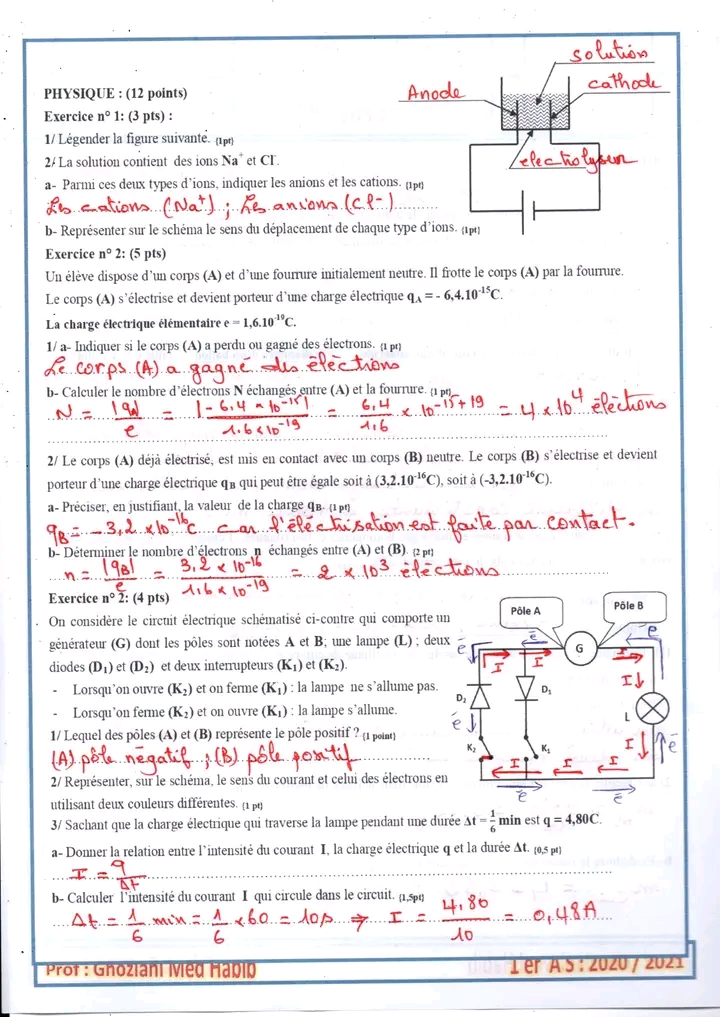 solution
cathode
Anode
électrolyseur
PHYSIQUE : (12 points)
Exercice n° 1: (3 pts) :
1/ Légender la figure suivante. (1pt)
2/ La solution contient des ions Na⁺ et Cl⁻.
a- Parmi ces deux types d'ions, indiquer les anions et les cations. (1pt)
Les cations (Na⁺) ; Les anions (Cl⁻)
b- Représenter sur le schéma le sens du déplacement de chaque type d'ions. (1pt)
Exercice n° 2: (5 pts)
Un élève dispose d'un corps (A) et d'une fourrure initialement neutre. Il frotte le corps (A) par la fourrure.
Le corps (A) s'électrise et devient porteur d'une charge électrique qA = - 6,4.10⁻¹⁵C.
La charge électrique élémentaire e = 1,6.10⁻¹⁹C.
1/ a- Indiquer si le corps (A) a perdu ou gagné des électrons. (1 pt)
Le corps (A) a gagné des éléctrons
b- Calculer le nombre d'électrons N échangés entre (A) et la fourrure. (1 pt)
N = |q|/e = |-6,4 × 10⁻¹⁵|/1.6 × 10⁻¹⁹ = 6,4/1,6 × 10⁻¹⁵⁺¹⁹ = 4 × 10⁴ éléctions
2/ Le corps (A) déjà électrisé, est mis en contact avec un corps (B) neutre. Le corps (B) s'électrise et devient
porteur d'une charge électrique qB qui peut être égale soit à (3,2.10⁻¹⁶C), soit à (-3,2.10⁻¹⁶C).
a- Préciser, en justifiant, la valeur de la charge qB. (1 pt)
qB = - 3,2 × 10⁻¹⁶ C car l'éléctrisation est faite par contact.
b- Déterminer le nombre d'électrons n échangés entre (A) et (B). (2 pt)
n = |qB|/e = 3,2 × 10⁻¹⁶/1,6 × 10⁻¹⁹ = 2 × 10³ éléctions
Exercice n° 2: (4 pts)
On considère le circuit électrique schématisé ci-contre qui comporte un
générateur (G) dont les pôles sont notées A et B; une lampe (L) ; deux
diodes (D₁) et (D₂) et deux interrupteurs (K₁) et (K₂).
- Lorsqu'on ouvre (K₂) et on ferme (K₁) : la lampe ne s'allume pas.
- Lorsqu'on ferme (K₂) et on ouvre (K₁) : la lampe s'allume.
1/ Lequel des pôles (A) et (B) représente le pôle positif ? (1 point)
(A) pôle négatif ; (B) pôle positif
2/ Représenter, sur le schéma, le sens du courant et celui des électrons en
utilisant deux couleurs différentes. (1 pt)
Pôle A
Pôle B
e⁻ e⁻ G e⁻
I I I
I
D₂ D₁
L
e⁻ I e⁻
K₂ K₁
I I I
e⁻ e⁻
3/ Sachant que la charge électrique qui traverse la lampe pendant une durée Δt = 1/6 min est q = 4,80C.
a- Donner la relation entre l'intensité du courant I, la charge électrique q et la durée Δt. (0,5 pt)
I = q/Δt
b- Calculer l'intensité du courant I qui circule dans le circuit. (1,5pt)
Δt = 1/6 min = 1/6 × 60 = 10s ⇒ I = 4,80/10 = 0,48A
Prof : Ghoziani Med Habib
1 er A S : 2020 / 2021